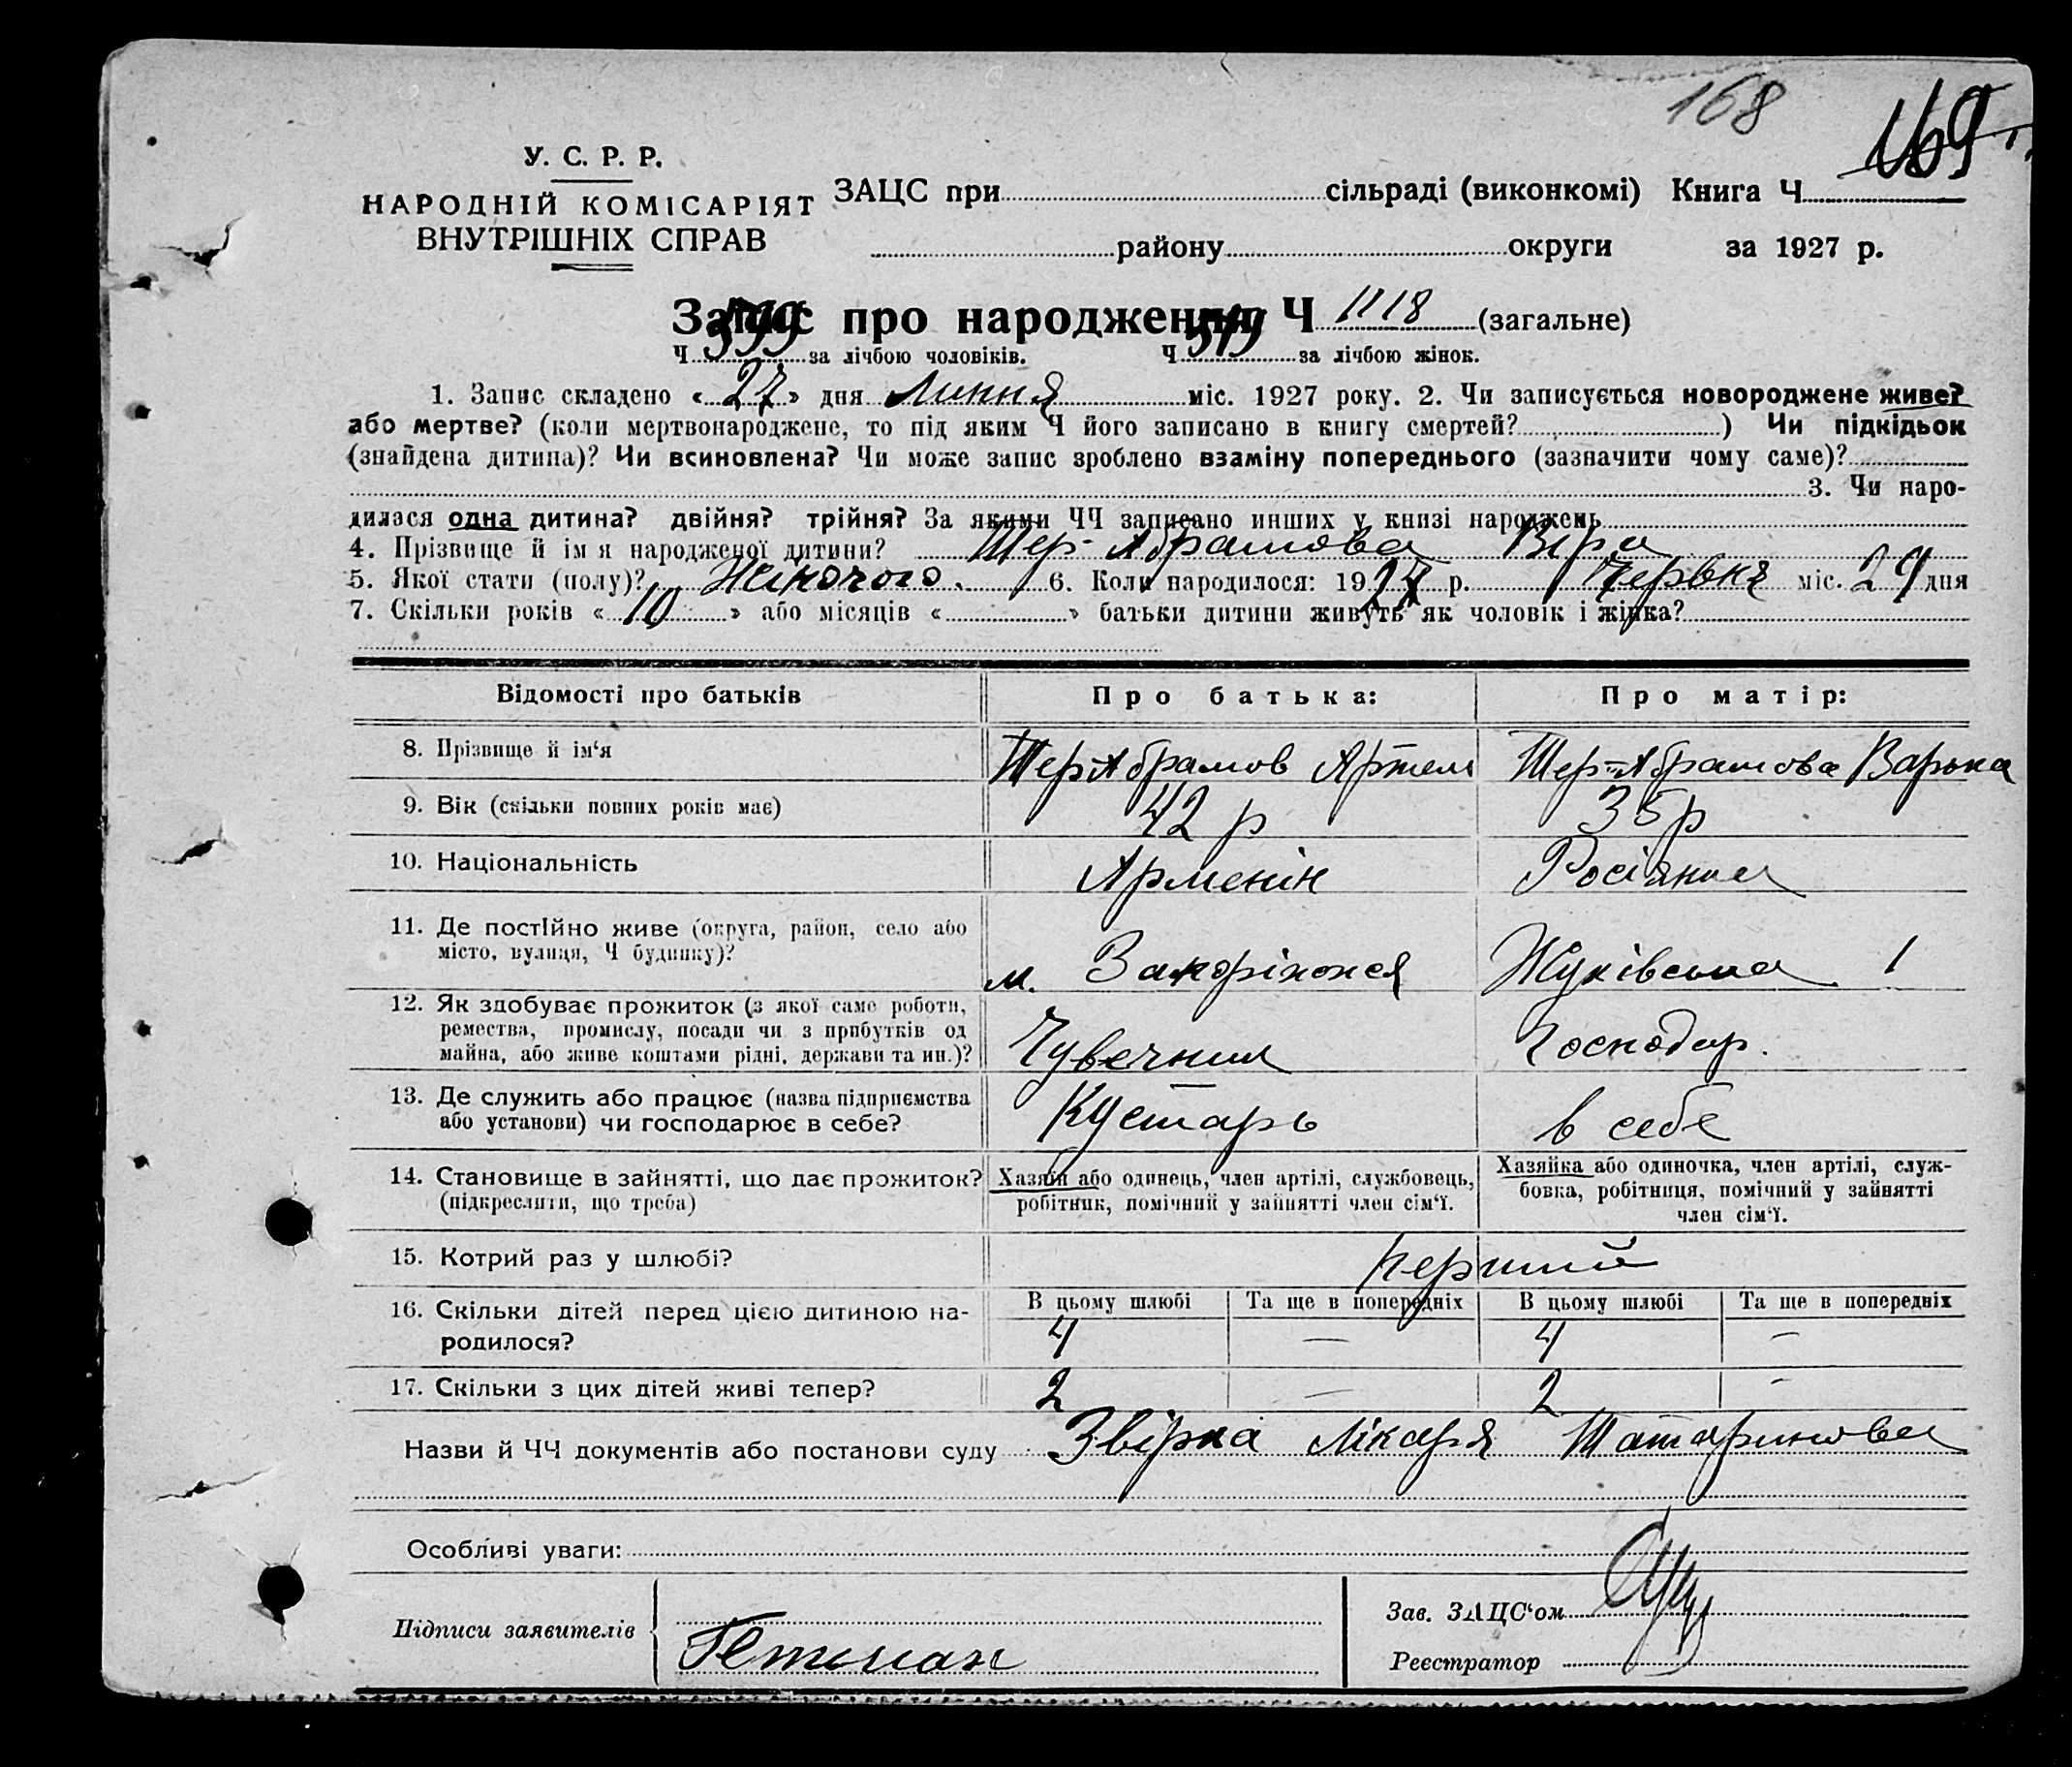 168
169
У. С. Р. Р.
НАРОДНІЙ КОМІСАРІЯТ
ВНУТРІШНІХ СПРАВ
ЗАЦС при сільраді (виконкомі) Книга Ч
району округи за 1927 р.
Запис про народження Ч 1118 (загальне)
Ч 599 за лічбою чоловіків. Ч 519 за лічбою жінок.
1. Запис складено « 27 » дня Липня міс. 1927 року. 2. Чи записується новороджене живе?
або мертве? (коли мертвонароджене, то під яким Ч його записано в книгу смертей? ) Чи підкідьок
(знайдена дитина)? Чи всиновлена? Чи може запис зроблено взаміну попереднього (зазначити чому саме)?
3. Чи наро-
дилася одна дитина? двійня? трійня? За якими ЧЧ записано инших у книзі народжень
4. Прізвище й ім'я народженої дитини? Тер-Абрамова Віра
5. Якої стати (полу)? Жіночого. 6. Коли народилося: 1927 р. Червня міс. 29 дня
7. Скільки років « 10 » або місяців « » батьки дитини живуть як чоловік і жінка?
Відомості про батьків Про батька: Про матір:
8. Прізвище й ім‘я Тер-Абрамов Артем Тер-Абрамова Варька
9. Вік (скільки повних років має) 42 р 35 р
10. Національність Арменін Росіянка
11. Де постійно живе (округа, район, село або
місто, вулиця, Ч будинку)? м. Запоріжжя Жуківська 1
12. Як здобуває прожиток (з якої саме роботи,
ремества, промислу, посади чи з прибутків од
майна, або живе коштами рідні, держави та ин.)? Чувечник Господар.
13. Де служить або працює (назва підприємства
або установи) чи господарює в себе? Кустарь в себе
14. Становище в зайнятті, що дає прожиток?
(підкреслити, що треба)
Хазяїн або одинець, член артілі, службовець,
робітник, помічний у зайнятті член сім‘ї.
Хазяйка або одиночка, член артілі, служ-
бовка, робітниця, помічний у зайнятті
член сім‘ї.
15. Котрий раз у шлюбі? перший
В цьому шлюбі Та ще в попередніх В цьому шлюбі Та ще в попередніх
16. Скільки дітей перед цією дитиною на-
родилося? 4 — 4 —
17. Скільки з цих дітей живі тепер? 2 — 2 -
Назви й ЧЧ документів або постанови суду Звірка лікаря Татаринова
Особливі уваги:
Підписи заявителів Гетьман
Зав. ЗАЦС‘ом
Реєстратор